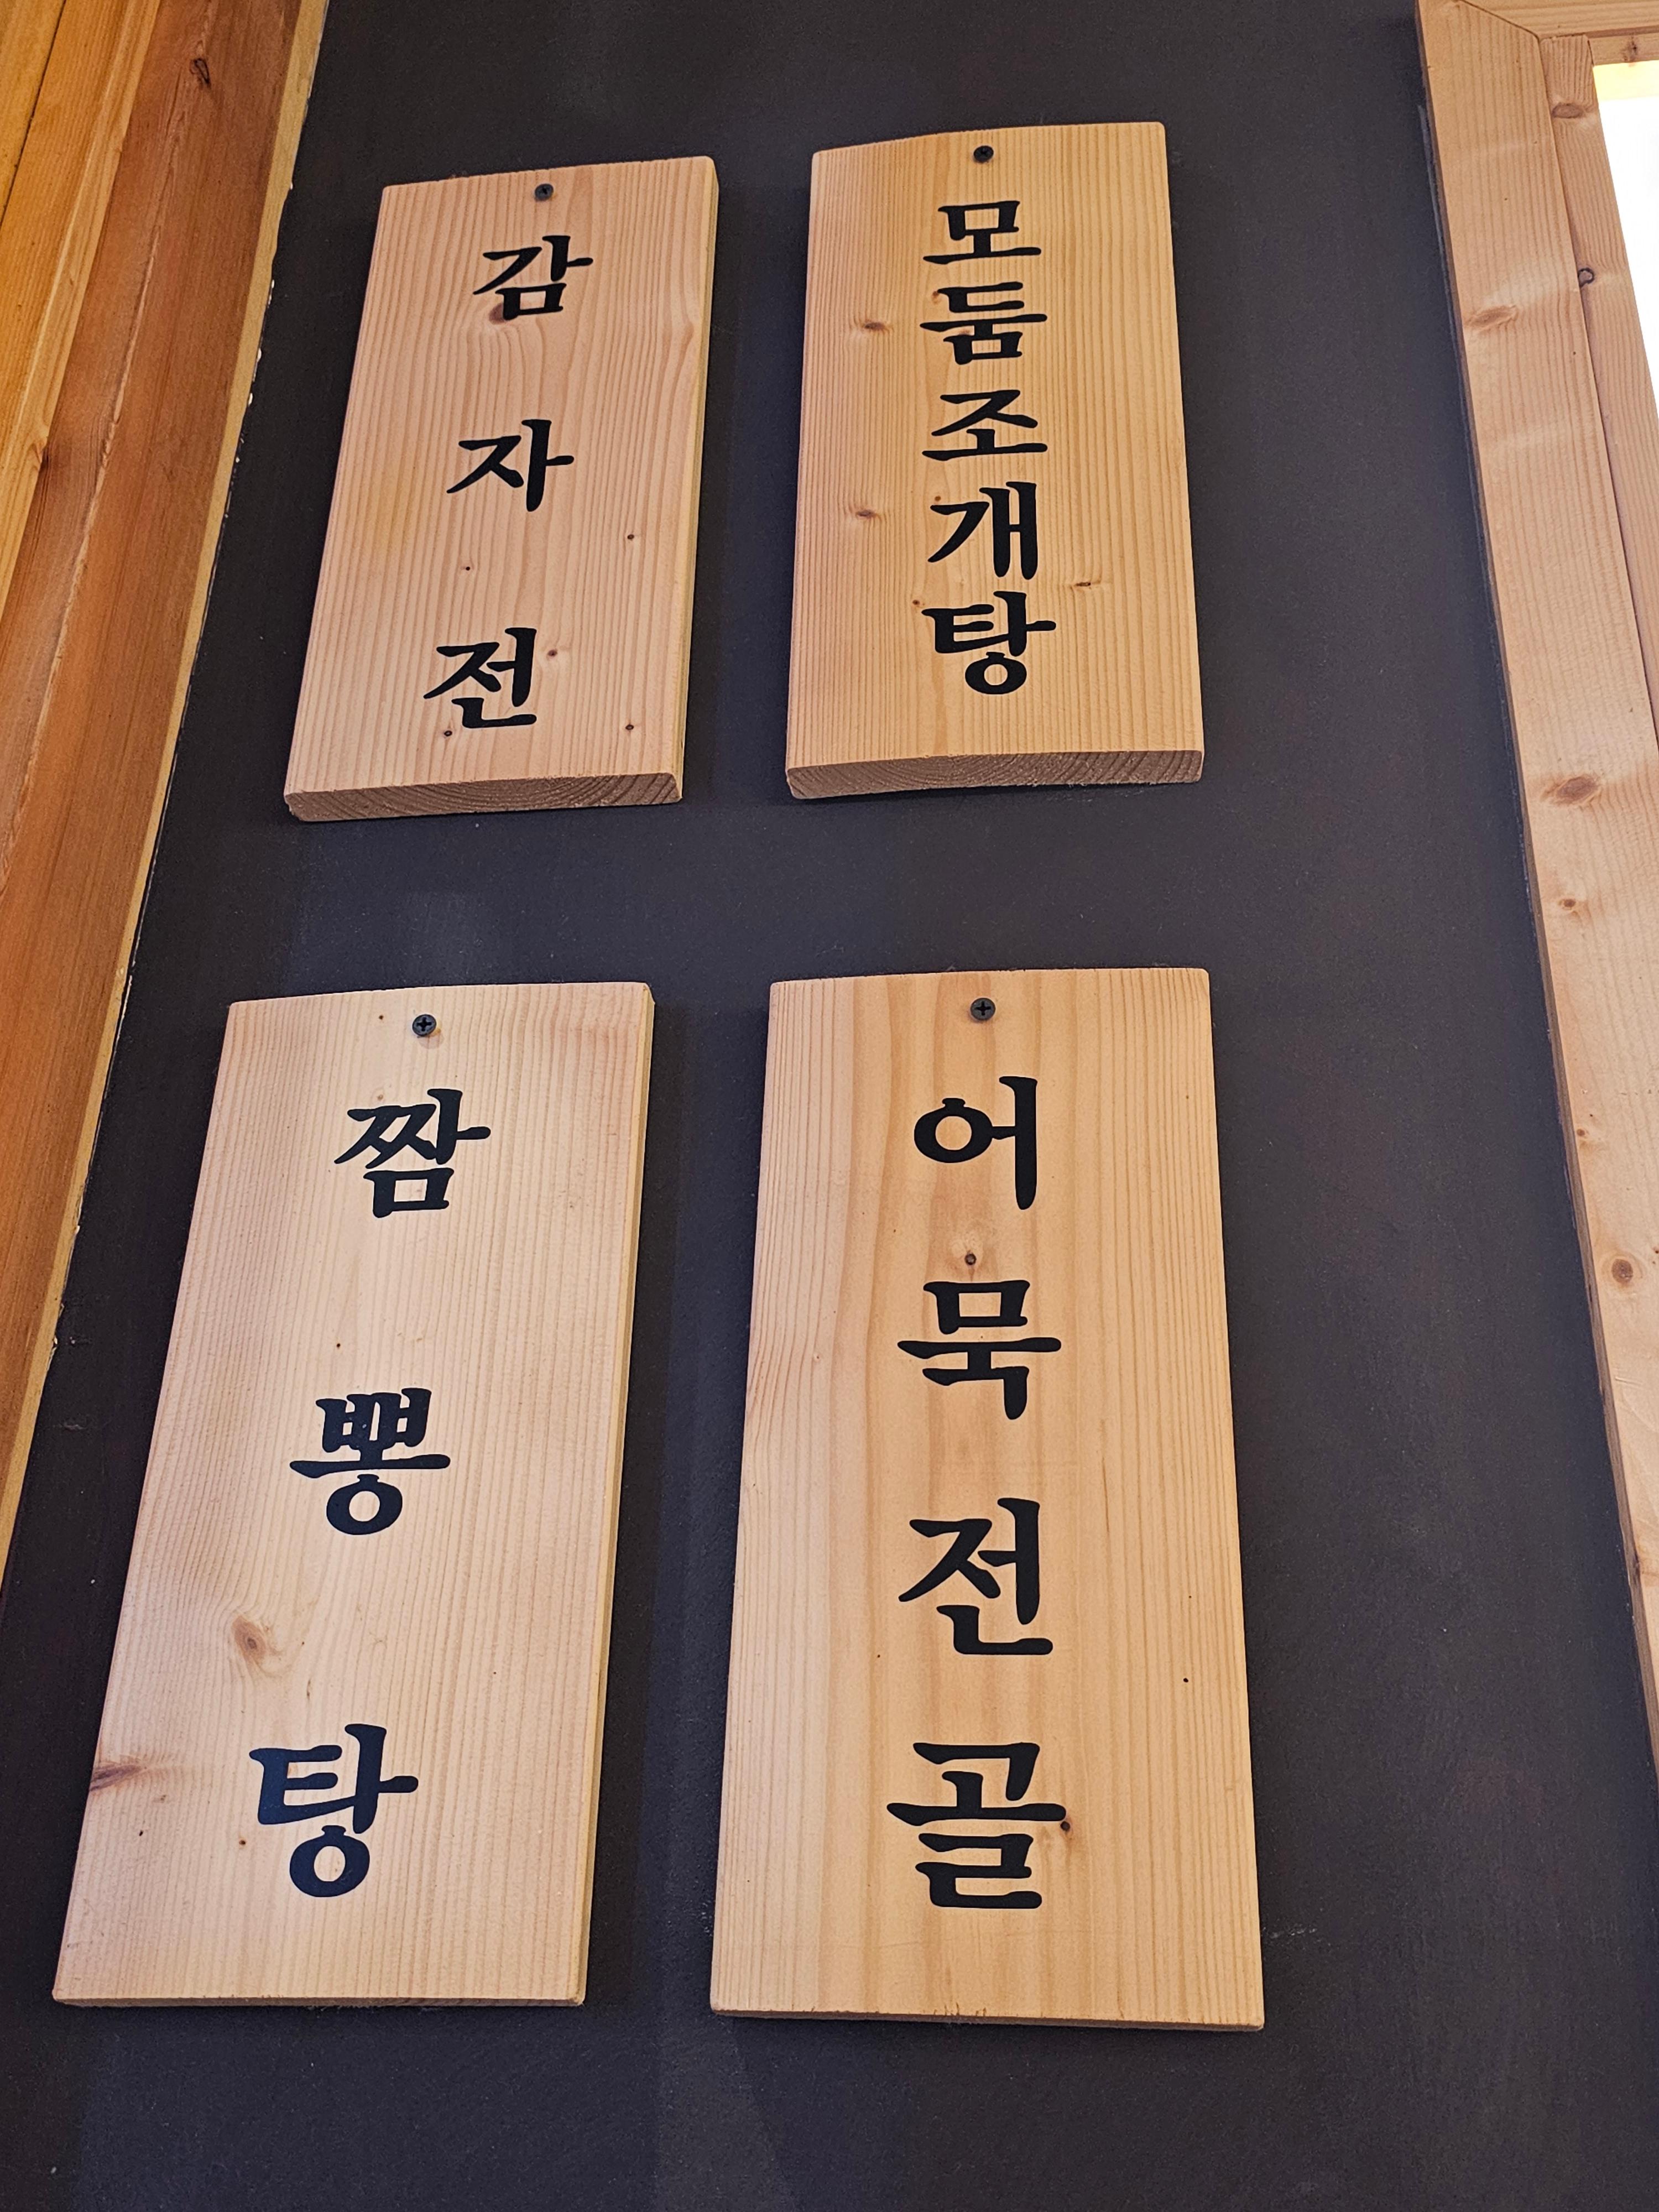 감자전
모둠조개탕
짬뽕탕
어묵전골